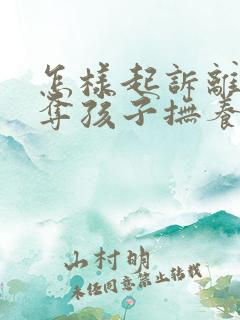 怎樣起訴離
奪孩子撫養
山村明
未经同意禁止转载